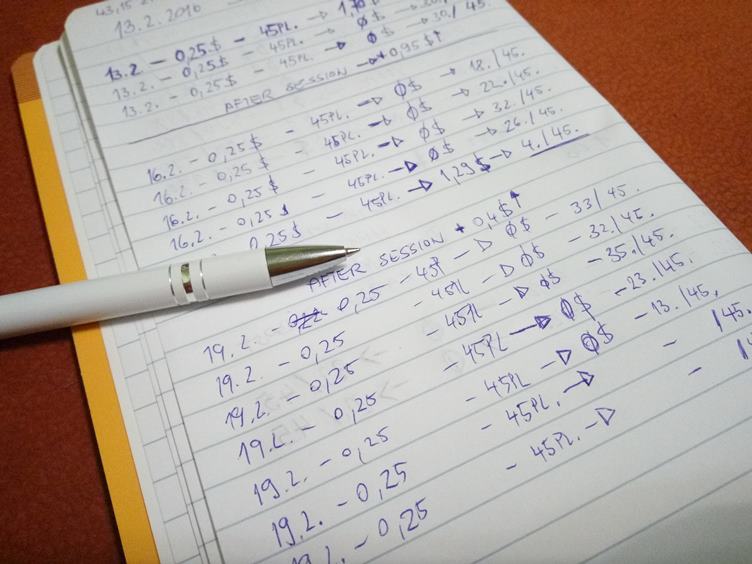 43,15
13.2.2016
13.2 - 0,25$ - 45PL. →
13.2. - 0,25$ - 45PL → ø$ →
13.2. - 0,25$ - 45PL → ø$ → 30./45.
AFTER SESSION → +0,95$↑
16.2. - 0,25$ - 45PL. → ø$ → 18./45.
16.2. - 0,25$ - 45PL. → ø$ → 22./45.
16.2. - 0,25$ - 45PL. → ø$ → 32./45.
16.2. - 0,25$ - 45PL. → ø$ → 26./45.
0,25$ - 45PL. → 1,29$ → 4./45.
AFTER SESSION + 0,4$↑
19.2. - 0,25 - 45P - → ø$ - 33/45.
19.2. - 0,25 - 45PL → ø$ - 32./45.
19.2. - 0,25 - 45PL → ø$ - 35./45.
19.2. - 0,25 - 45PL → ø$ - 23./45.
19.2. - 0,25 - 45PL. → ø$ - 13./45.
19.2. - 0,25 - 45PL. → - /45.
19.2. - 0,25 - 45PL. → -